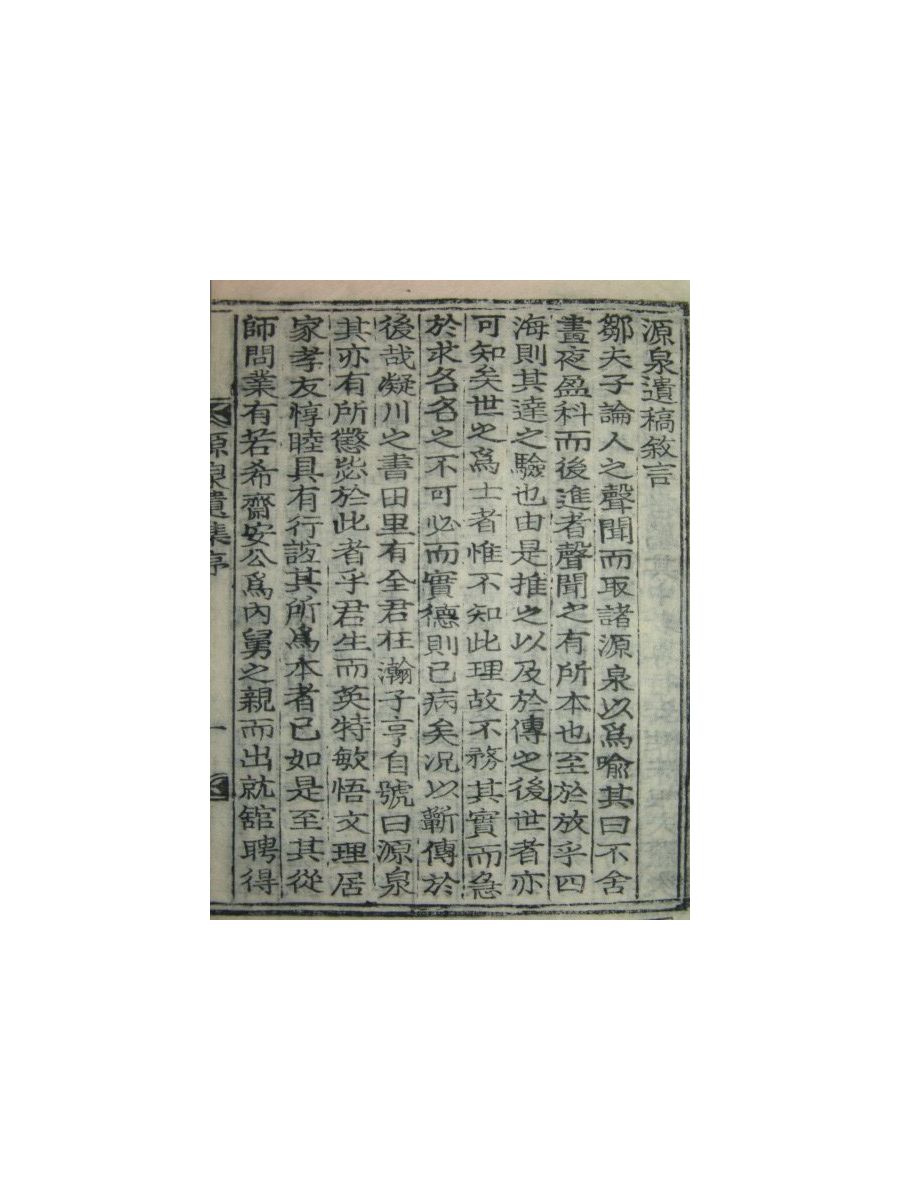 源泉遺稿敘言
鄒夫子論人之聲聞而取諸源泉以爲喩其曰不舍
晝夜盈科而後進者聲聞之有所本也至於放乎四
海則其達之驗也由是推之以及於傳之後世者亦
可知矣世之爲士者惟不知此理故不務其實而急
於求名名之不可必而實德則已病矣况以蘄傳於
後哉凝川之書田里有全君在瀚子亨自號曰源泉
其亦有所懲毖於此者乎君生而英特敏悟文理居
家孝友惇睦具有行誼其所爲本者已如是至其從
師問業有若希齋安公爲內舅之親而出就舘聘得
源泉遺集序
一